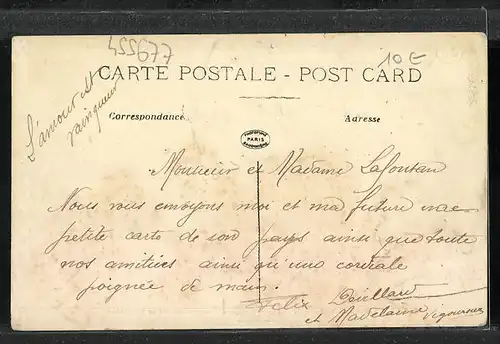 455677
10 €
L'amour est
vainqueur
CARTE POSTALE - POST CARD
Correspondance
Adresse
PARIS
Monsieur et Madame Lafontan
Nous vous envoyons moi et ma future une
petite carte de son pays ainsi que toute
nos amitiées ainsi qu'une cordiale
poignée de main.
Felix
et Madelaine Vigouroux